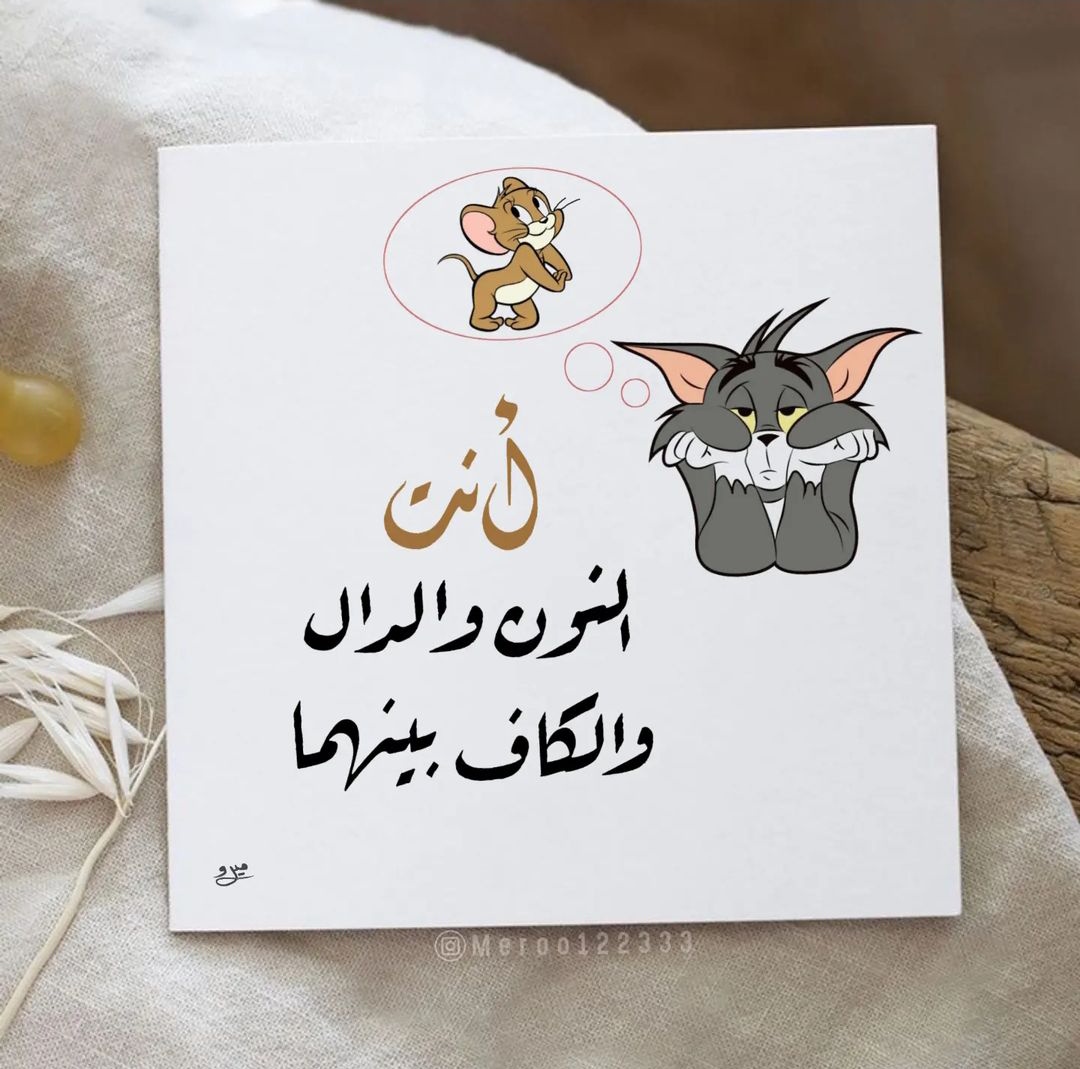 أنت
النون والدال
والكاف بينهما
ميرو
@Meroo122333